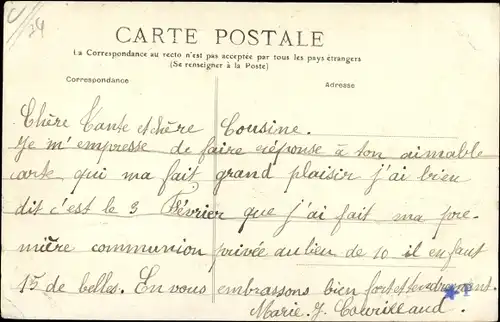 34
CARTE POSTALE
La Correspondance au recto n'est pas acceptée par tous les pays étrangers
(Se renseigner à la Poste)
Correspondance
Adresse
Chère Tante et chère Cousine.
Je m'empresse de faire réponse à ton aimable
carte qui ma fait grand plaisir j'ai bien
dit c'est le 3 Février que j'ai fait ma pre-
mière communion privée au lieu de 10 il en faut
15 de belles. En vous embrassons bien fort et tendrement.
Marie. J.